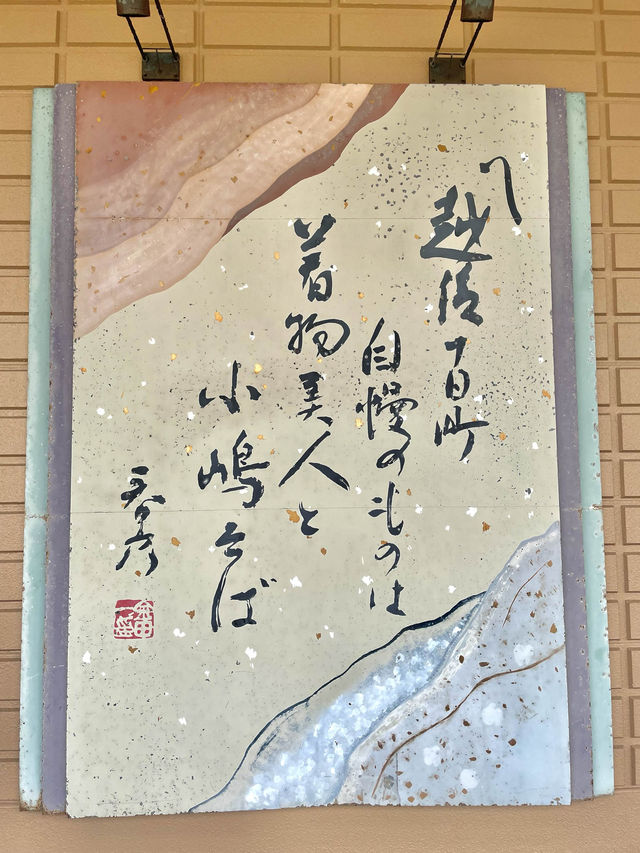 〽
越後十日町
自慢のものは
着物美人と
小嶋そば